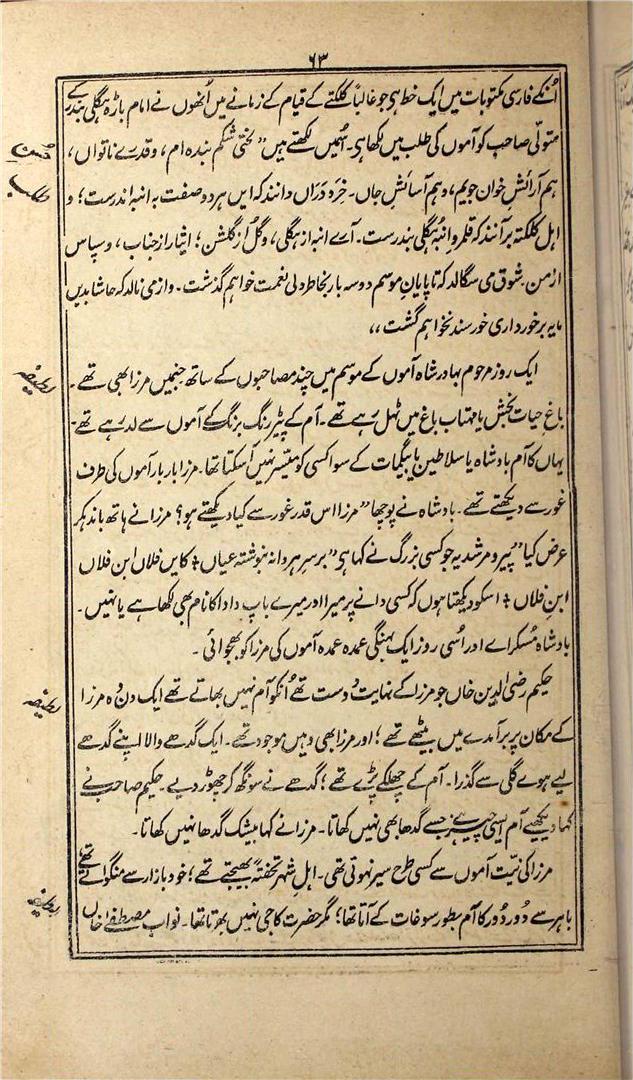 ۶۳
اُنکے فارسی مکتوبات میں ایک خط ہی جو غالباً کلکتے کے قیام کے زمانے میں اُنھوں نے امام باڑہ ہگلی بندر کے
متولّی صاحب کو آموں کی طلب میں لکھا ہی۔ اُسمیں لکھتے ہیں ”لختی شکم بندہ ام، و قدرے ناتواں،
حسن
طلب
ہم آرائشِ خوان جویم، و ہم آسائشِ جاں۔ خِرد وَراں دانند کہ ایں ہر دو صفت بہ انبہ اندرست؛ و
اہل کلکتہ بر آنند کہ قلمرو انبہ ہگلی بندرست۔ آرے انبہ از ہگلی، و گُل از گلشن؛ ایثار از جناب، و سپاس
از من۔ شوق می سگالد کہ تا پایانِ موسم دو سہ بار بخاطر ولی نعمت خواہم گذشت۔ و آز می نالد کہ حاشا بدیں
مایہ برخورداری خورسند نخواہم گشت،،
لطیفہ
ایک روز مرحوم بہادر شاہ آموں کے موسم میں چند مصاحبوں کے ساتھ جنمیں مرزا بھی تھے۔
باغِ حیات بخش یا مہتاب باغ میں ٹہل رہے تھے۔ آم کے پیڑ رنگ برنگ کے آموں سے لد رہے تھے۔
یہاں کا آم بادشاہ یا سلاطین یا بیگمات کے سوا کسی کو میسر نہیں آسکتا تھا۔ مرزا بار بار آموں کی طرف
غور سے دیکھتے تھے۔ بادشاہ نے پوچھا ”مرزا اس قدر غور سے کیا دیکھتے ہو؟ مرزا نے ہاتھ باندہکر
عرض کیا ”پیر و مرشد یہ جو کسی بزرگ نے کہا ہی ”برسرِ ہر دانہ بنوشتہ عیاں ؛ کایں فلاں ابن فلاں
ابنِ فلاں ؛ اسکو دیکھتا ہوں کہ کسی دانے پر میرا اور میرے باپ دادا کا نام بھی لکھا ہے یا نہیں۔
بادشاہ مُسکراے اور اُسی روز ایک بہنگی عمدہ عمدہ آموں کی مرزا کو بھجوائی۔
لطیفہ
حکیم رضی الدین خاں جو مرزا کے نہایت دوست تھے اُنکو آم نہیں بھاتے تھے ایک دن وہ مرزا
کے مکان پر برآمدے میں بیٹھے تھے؛ اور مرزا بھی وہیں موجود تھے۔ ایک گدھے والا اپنے گدھے
لیے ہوے گلی سے گذرا۔ آم کے چھلکے پڑے تھے؛ گدھے نے سونگھ کر چھوڑ دیے۔ حکیم صاحب نے
کہا دیکھیے آم ایسی چیز ہے جسے گدھا بھی نہیں کھاتا۔ مرزا نے کہا بیشک گدھا نہیں کھاتا۔
مرزا کی نیّت آموں سے کسی طرح سیر نہوتی تھی۔ اہل شہر تحفتہً بھیجتے تھے؛ خود بازار سے منگواتے تھے
لطیفہ
باہر سے دُور دُور کا آم بطور سوغات کے آتا تھا؛ مگر حضرت کا جی نہیں بھرتا تھا۔ نواب مصطفٰے خاں